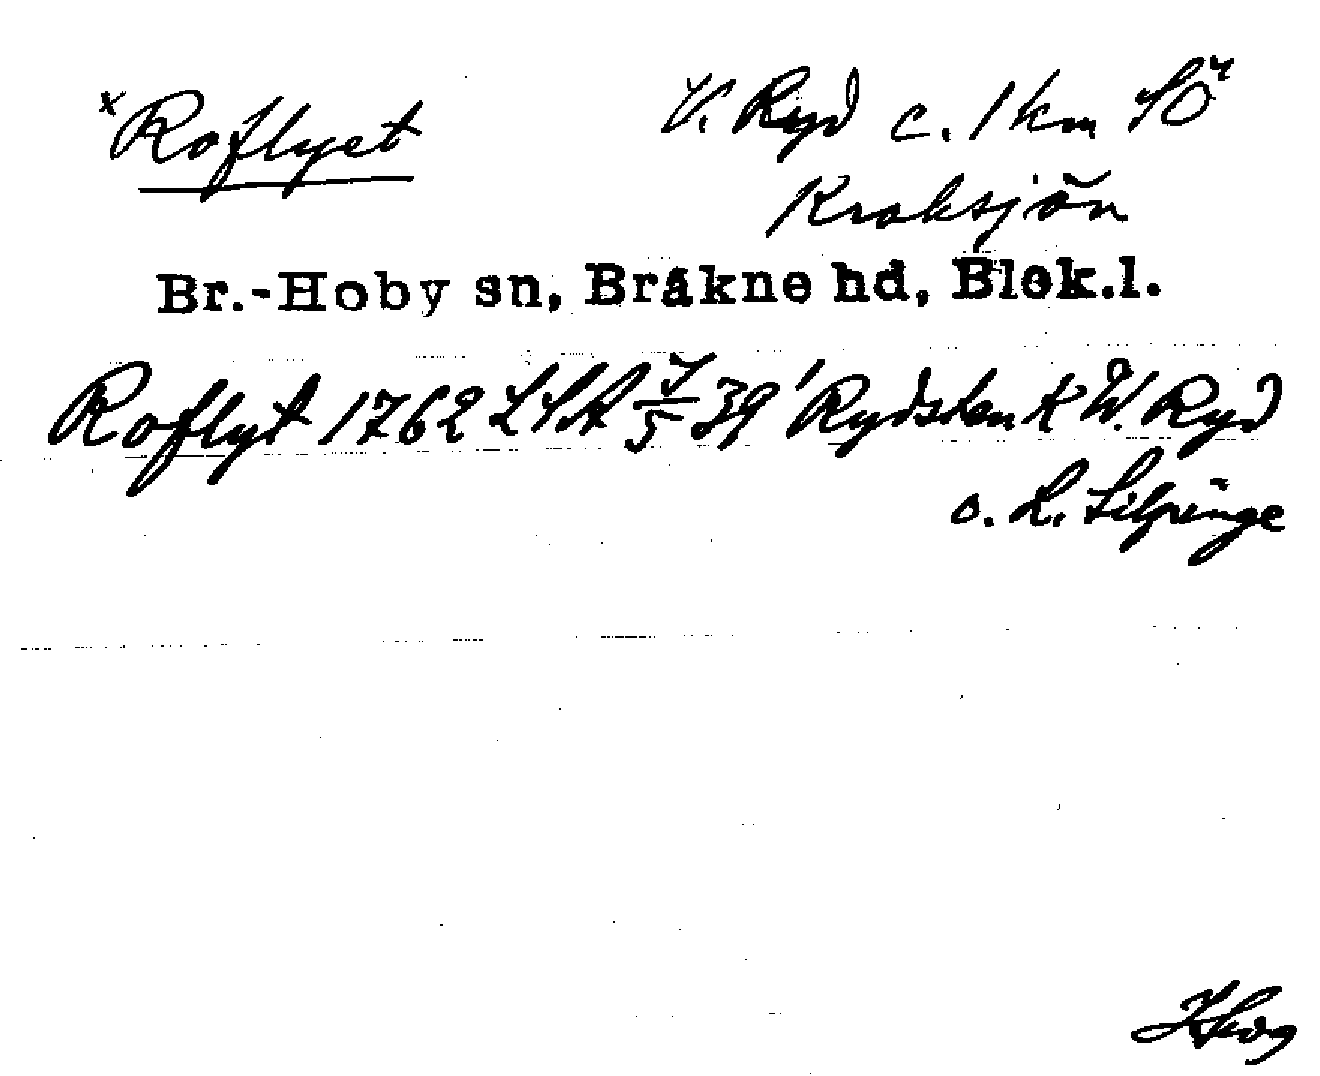 x Roflyet
V. Ryd c. 1 km SÖ
Kroksjön
Br.-Hoby sn, Bräkne hd, Blek.l.
Roflyt 1762 LSA 7/5 39 'Rydsten K W. Ryd
o. L. Silpinge